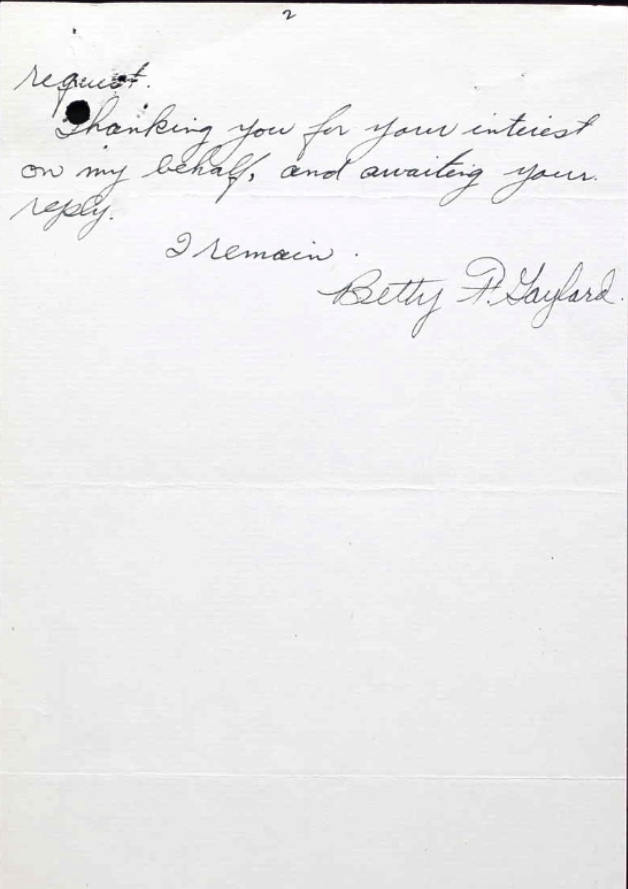 2
request.
Thanking you for your interest
on my behalf, and awaiting your
reply.
I remain.
Betty P. Gaylard.